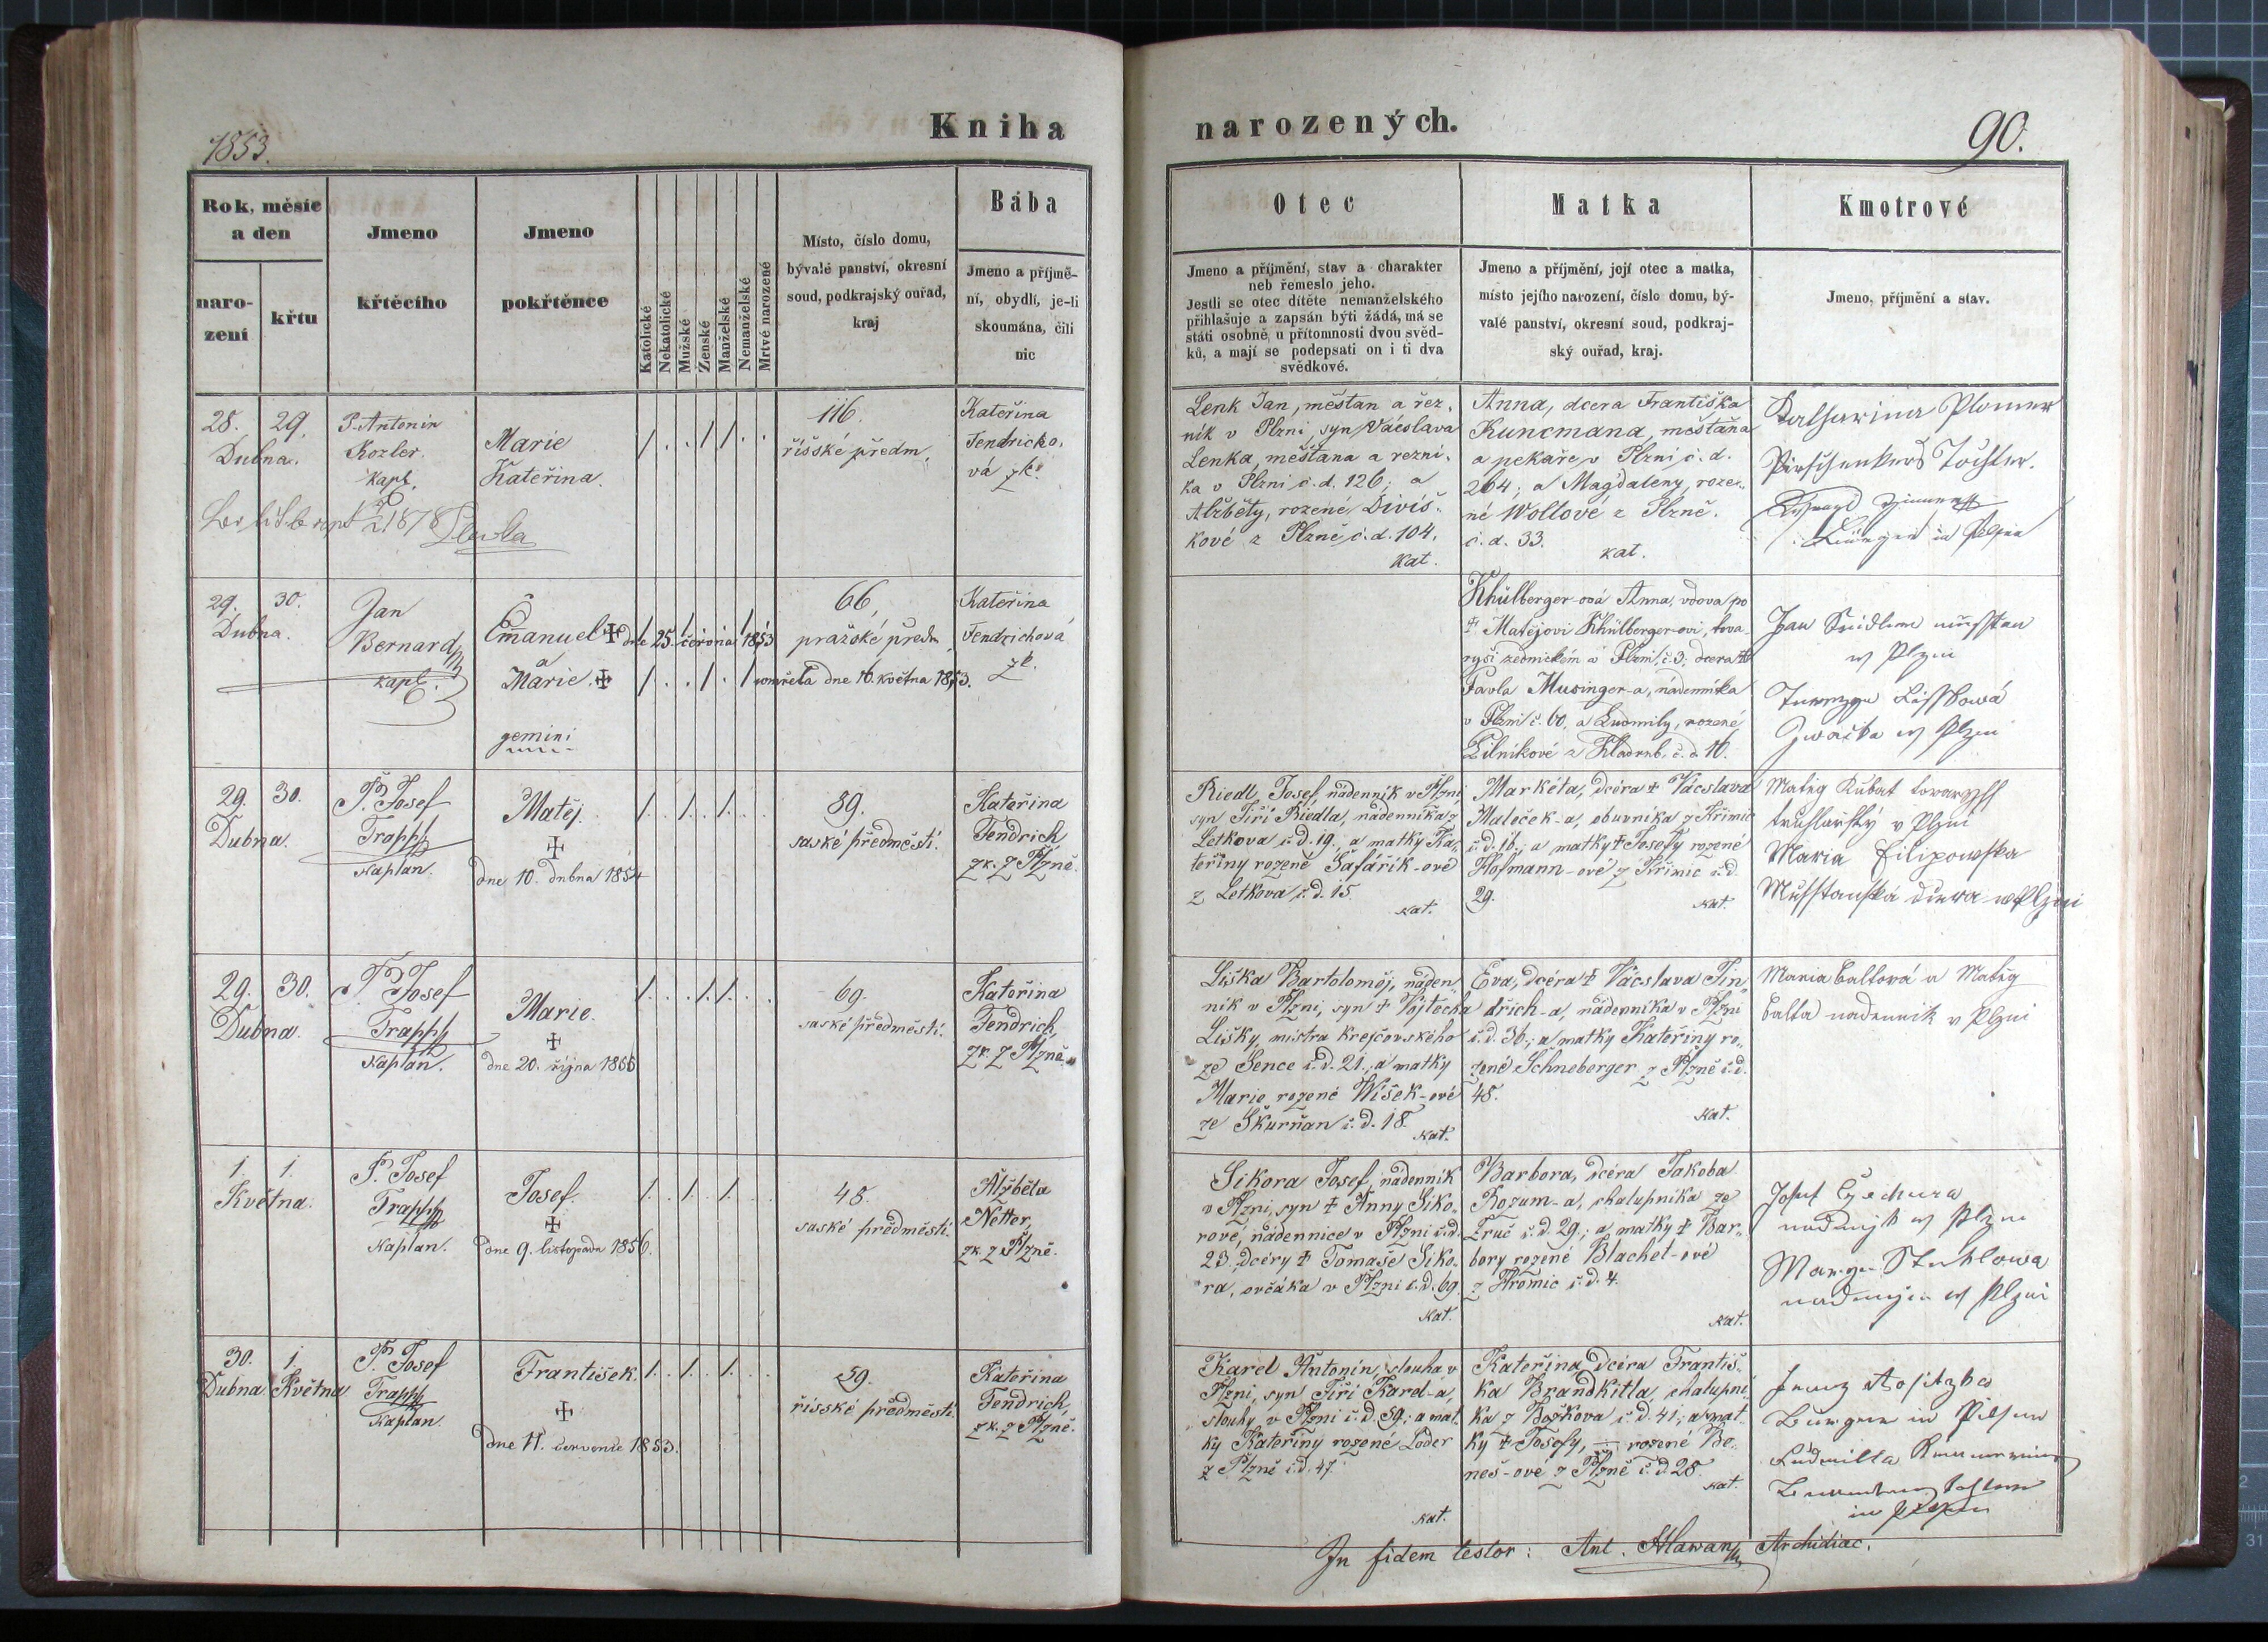 Kniha
narozených.
1853.
90.
Rok, měsíc
a den
naro-
zení
křtu
Jmeno
křtěcího
Jmeno
pokřtěnce
Katolické
Nekatolické
Mužské
Ženské
Manželské
Nemanželské
Mrtvě narozené
Místo, číslo domu,
bývalé panství, okresní
soud, podkrajský ouřad,
kraj
Bába
Jmeno a příjmě-
ní, obydlí, je-li
skoumána, čili
nic
Otec
Jmeno a příjmění, stav a charakter
neb řemeslo jeho.
Jestli se otec dítěte nemanželského
přihlašuje a zapsán býti žádá, má se
státi osobně u přítomnosti dvou svěd-
ků, a mají se podepsati on i ti dva
svědkové.
Matka
Jmeno a příjmění, její otec a matka,
místo jejího narození, číslo domu, bý-
valé panství, okresní soud, podkraj-
ský ouřad, kraj.
Kmotrové
Jmeno, příjmění a stav.
28. 29.
Dubna.
P. Antonin
Kozler.
kapl.
Marie
Kateřina.
116.
říšské předm.
Kateřina
Jendricho-
vá zk.
Lenk Jan, měštan a řez-
ník v Plzni, syn Václava
Lenka, měštana a řezní-
ka v Plzni č.d. 126; a
Alžběty, rozené Diviš-
kové z Plzně č.d. 104.
kat.
Anna, dcera Františka
Kuncmana, měštana
a pekaře v Plzni č.d.
264; a Magdaleny, roze-
né Wollové z Plzně.
č.d. 33.
kat.
Katharina Plomer
Tochter.
29. 30.
Dubna.
Jan
Bernard
kapl.
Emanuel ✠ dne 25. června 1853
a
Marie. ✠ umřela dne 16. května 1853.
gemini
66,
pražské předm.
Kateřina
Jendrichová
zk.
Khülberger-ová Anna, vdova po
✝ Matějovi Khülberger-ovi, tova-
ryši zednickém v Plzni č. 3; dcera ✝
Pavla Musinger-a, nádenníka
v Plzni č. 60. a Ludmily, rozené
Pilnikové z Kladrub. č.d. 16.
Jan
w Plzni
w Plzni
29. 30.
Dubna.
P. Josef
Trapp
Kaplan.
Matěj.
✠
dne 10. dubna 1854
89.
saské předměstí.
Kateřina
Jendrich
zk. z Plzně.
Riedl Josef, nádenník v Plzni,
syn Jiří Riedla, nádenníka z
Letkova č.d. 19., a matky Ka-
teřiny rozené Šafářík-ové
z Letkova č.d. 15.
kat.
Markéta, dcéra ✝ Václava
Maleček-a, obuvníka z Křimic
č.d. 16.; a matky ✝ Josefy rozené
Hofmann-ové z Křimic č.d.
29.
kat.
Matěg Kubat towaryss
truhlařský v Plzni
Maria Filipowska
29. 30.
Dubna.
P. Josef
Trapp
Kaplan.
Marie.
✠
dne 20. října 1855
69.
saské předměstí.
Kateřina
Jendrich,
zk. z Plzně.
Liška Bartoloměj, náden-
ník v Plzni, syn ✝ Vojtěcha
Lišky, mistra krejčovského
ze Sence č.d. 21., a matky
Marie rozené Wišek-ové
ze Škurňan č.d. 18.
kat.
Eva, dcéra ✝ Václava Jin-
dřich-a, nádenníka v Plzni
č.d. 36.; a matky Kateřiny ro-
zené Schneberger z Plzně č.d.
48.
kat.
Maria Baltová a Matěg
Balta nadennik v Plzni
1. 1.
Května.
P. Josef
Trapp
Kaplan.
Josef
✠
dne 9. listopadu 1856.
48.
saské předměstí.
Alžběta
Netter,
zk. z Plzně.
Sikora Josef, nádenník
v Plzni, syn ✝ Anny Siko-
rové, nádennice v Plzni č.d.
23., dcéry ✝ Tomaše Siko-
ra, ovčáka v Plzni č.d. 69.
kat.
Barbora, dcéra Jakoba
Rozum-a, chalupníka ze
Zruč č.d. 29.; a matky ✝ Bar-
bory rozené Blachet-ové
z Hromic č.d. 4.
kat.
Josef
w Plzni
w Plzni
30. 1.
Dubna. Května
P. Josef
Trapp
Kaplan.
František.
✠
dne 11. července 1853.
59.
říšské předměstí.
Kateřina
Jendrich,
zk. z Plzně.
Karel Antonín, slouha v
Plzni, syn Jiří Karel-a,
slouhy v Plzni č.d. 59.; a mat-
ky Kateřiny rozené Loder
z Plzně č.d. 47.
kat.
Kateřina, dcéra Františ-
ka Brandkitla, chalupní-
ka z Božkova č.d. 41.; a mat-
ky ✝ Josefy, rozené Be-
neš-ové z Plzně č.d. 28.
kat.
Burger in Pilsen
Ludmilla
in Pilsen
In fidem testor: Ant. Hlawan Archidiac.